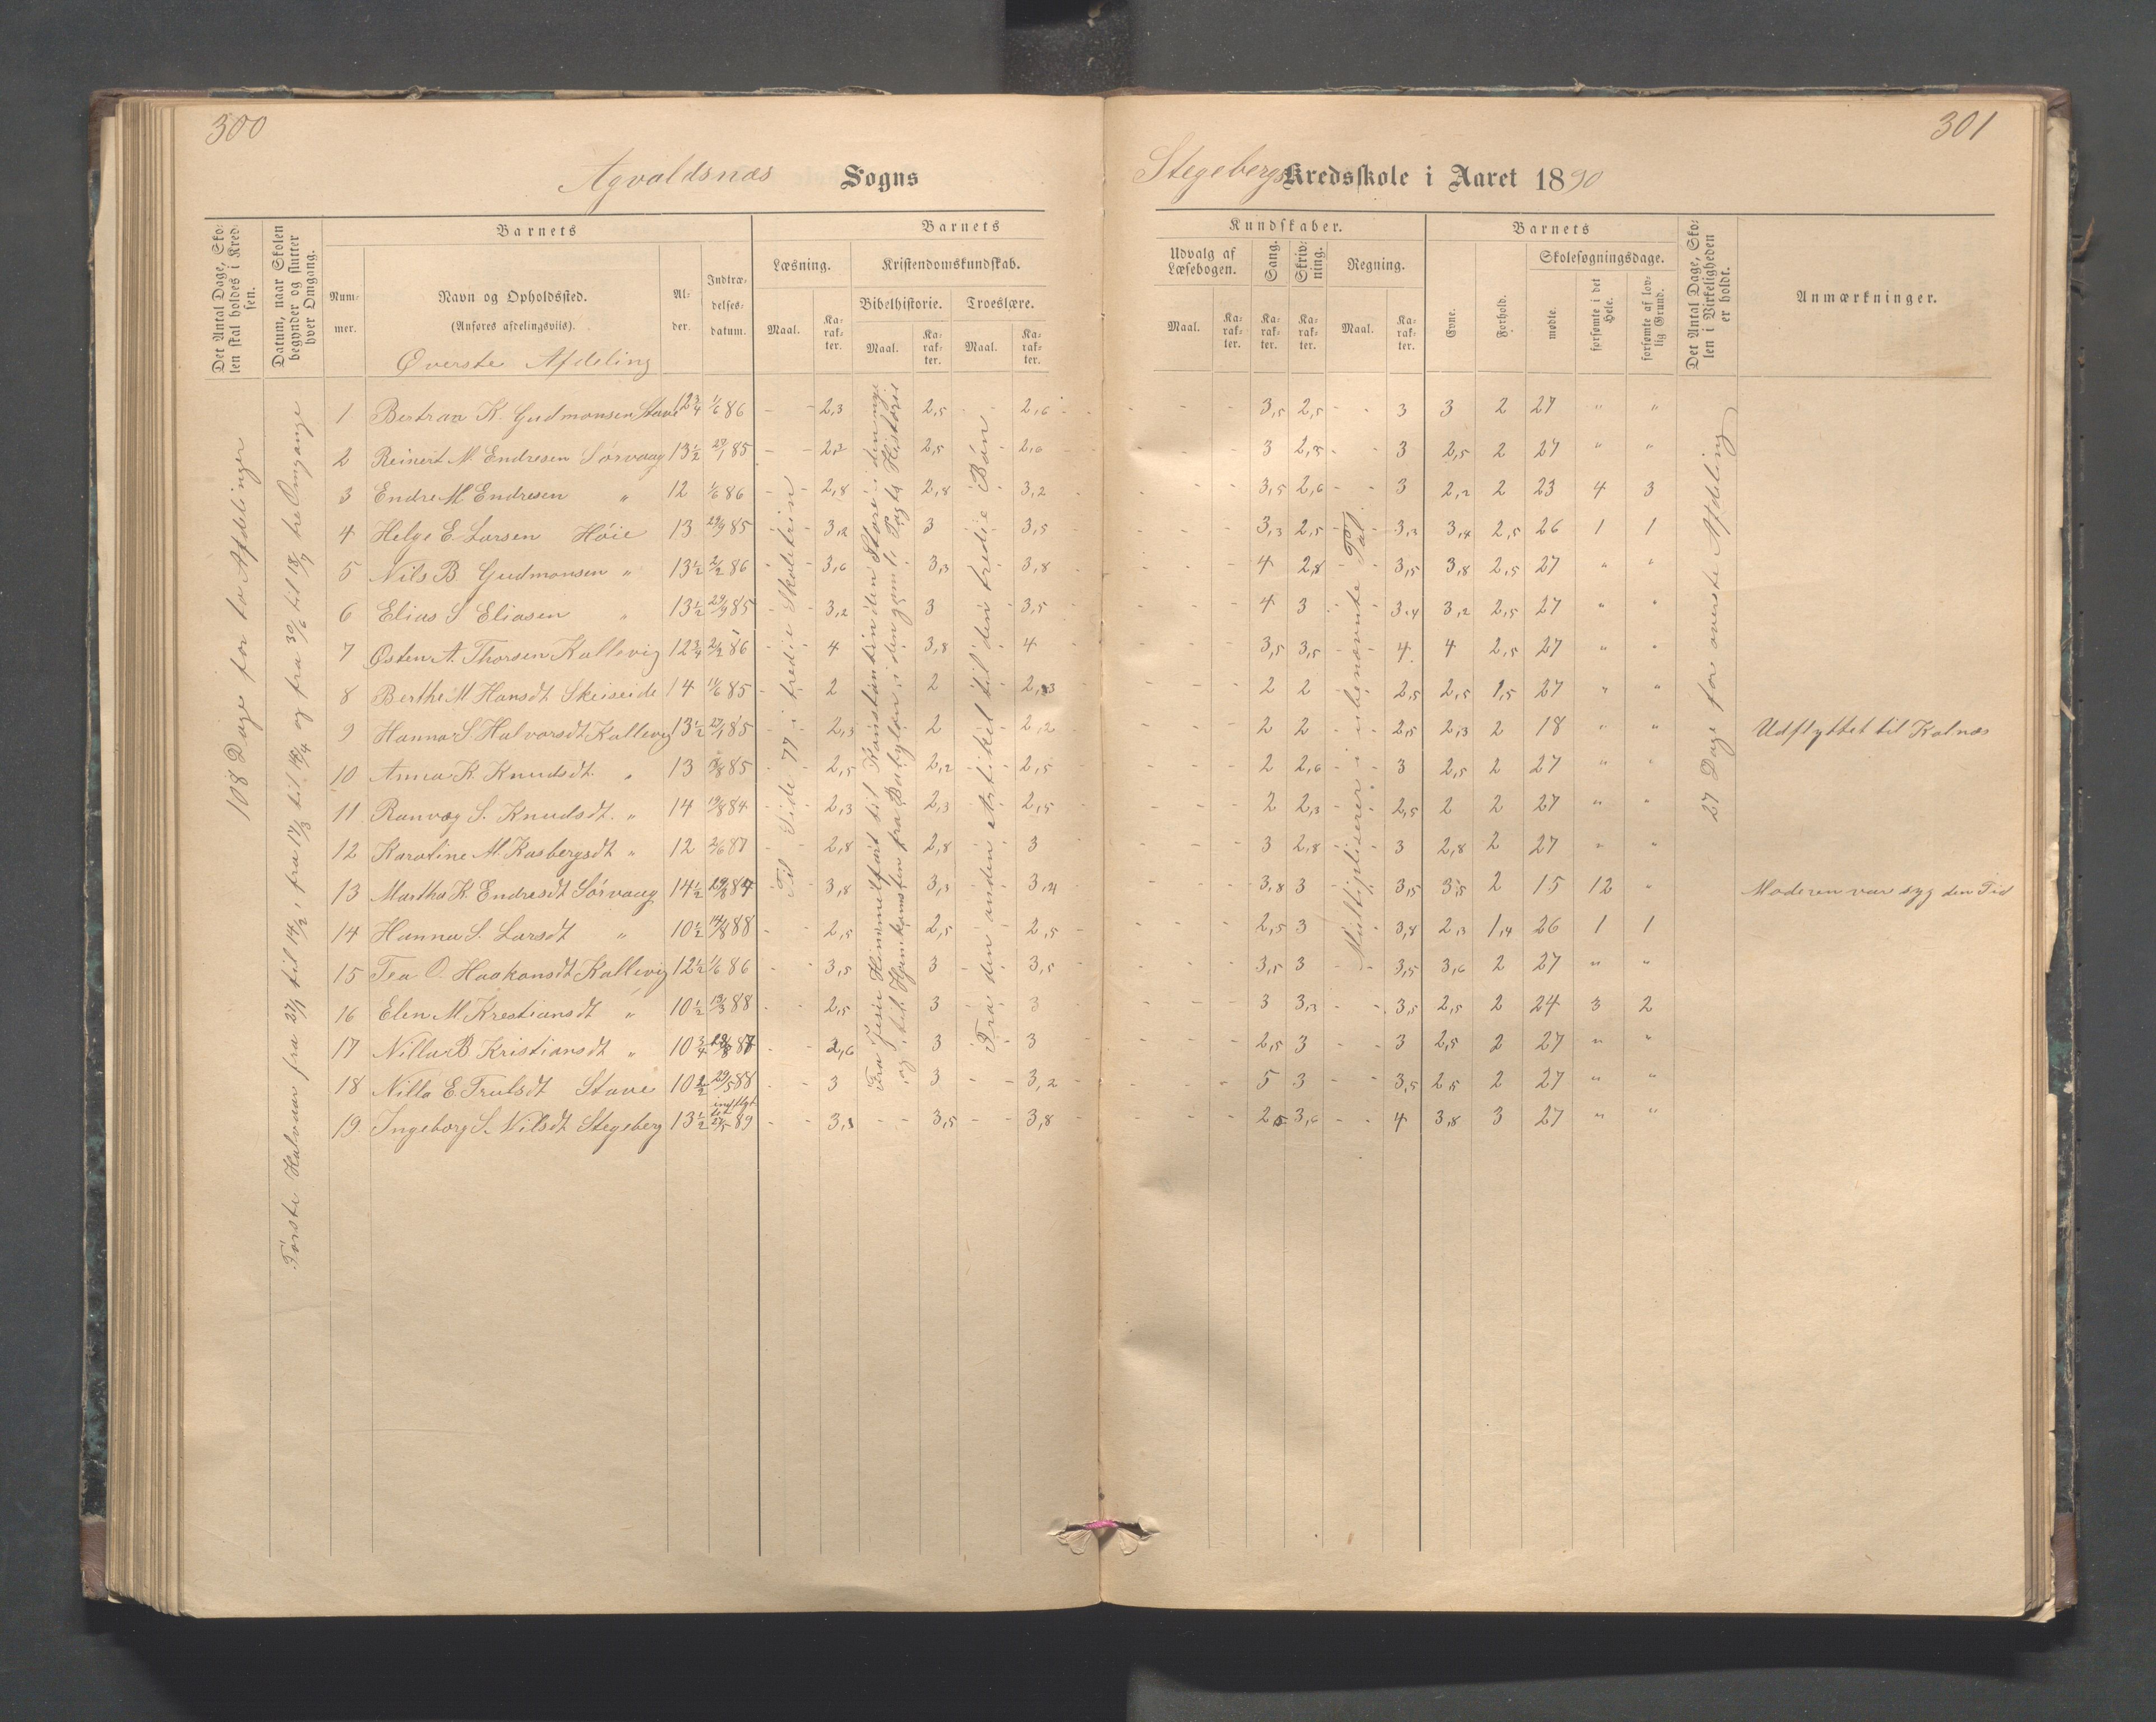 300
301
Agvaldsnæs Sogns
Stegebergs Kredsskole i Aaret 1890
Det Antal Dage, Skolen skal holdes i Kredsen.
Datum, naar Skolen begynder og slutter hver Omgang.
Barnets
Nummer.
Navn og Opholdssted.
(Anføres afdelingsviis).
Øverste Afdeling
Alder.
Indtrædelsesdatum.
Barnets
Kundskaber.
Læsning.
Maal.
Karakter.
Kristendomskundskab.
Bibelhistorie.
Maal.
Karakter.
Troeslære.
Maal.
Karakter.
Udvalg af Læsebogen.
Maal.
Karakter.
Sang.
Karakter.
Skrivning.
Karakter.
Regning.
Maal.
Karakter.
Barnets
Evne.
Forhold.
Skolesøgningsdage.
mødte.
forsømte i det Hele.
forsømte af lovlig Grund.
Det Antal Dage, Skolen i Virkeligheden er holdt.
Anmærkninger.
108 Dage for to Afdelinger
Første Halvaar fra 27/1 til 14/2, fra 17/3 til 18/4 og fra 30/6 til 18/7 tre Omgange
Til Side 77 i tredie Skoletrin
Fra Jesu Himmelfart til Konstantin den Store i den nye
og til Hjemkomsten fra Babylon i den gamle Pagts Historie
Fra den anden Artikel til den tredie Bøn
Multipliserer i ubenævnte Tal
27 Dage for øverste Afdeling
1 Bertran K. Gudmonsen Stave 12 3/4 1/6 86 - - 2,3 2,5 - - 2,6 - - - - 3,5 2,5 - - 3 3 2 27 " "
2 Reinert M. Endresen Sørvaag 13 1/2 27/1 85 - - 2,2 2,5 - 2,6 - - - 3 2,5 - - 3 2,5 2 27 " "
3 Endre M Endresen " 12 1/6 86 - - 2,8 2,8 - 3,2 - - - 3,5 2,6 - - 3 2,2 2 23 4 3
4 Helge E Larsen Høie 13 29/9 85 - - 3,2 3 - - 3,5 - - - 3,3 2,5 - - 3,3 3,4 2,5 26 1 1
5 Nils B. Gudmonsen " 13 1/2 2/2 86 - - 3,6 3,3 - 3,8 - - - 4 2,8 - - 3,5 3,8 2,5 27 " "
6 Elias S Eliasen " 13 1/2 29/9 85 - - 3,2 3 - 3,5 - - - 4 3 - - 3,4 3,2 2,5 27 " "
7 Østen A. Thorsen Kallevig 12 3/4 2/2 86 - - 4 3,8 - 4 - - - 3,5 3,5 - - 4 4 2,5 27 " "
8 Berthe M Hansdt Skeiseide 14 11/6 85 - - 2 2 - 2,3 - - - 2 2 - - 2,5 2,5 1,5 27 " "
9 Hanna S. Halvorsdt Kallevig 13 1/2 27/1 85 - - 2,3 2 - 2,2 - - - 2 2 - - 2,5 2,3 2 18 " " Udflyttet til Kalnæs
10 Anna K. Knudsdt. " 13 85 - - 2,5 2,2 - 2,5 - - - 2 2,6 - - 3 2,5 2 27 " "
11 Ranvæg S. Knudsdt. " 14 19/8 84 - - 2,3 2,3 - 2,5 - - - 2 2,3 - - 2,5 2 2 27 " "
12 Karoline M. Kasbergsdt " 12 2/6 87 - - 2,8 2,8 - 3 - - - 3 2,8 - - 3 2,8 2 27 " "
13 Martha K. Endresdt Sørvaag 14 1/2 84 - - 3,8 3,3 - 3,4 - - - 3,8 3 - - 3,5 3,5 2 15 12 " Moderen var syg den Tid
14 Hanna S. Larsdt " 10 1/2 14/8 88 - - 2,5 2,5 - 2,5 - - - 2,5 3 - - 3,8 2,3 1,4 26 1 1
15 Tea O. Haakonsdt Kallevig 12 1/2 1/6 86 - - 3,5 3 - 3,5 - - - 3,5 3 - - 3,5 3,6 2 27 " "
16 Elen M Krestiansdt " 10 1/2 13/3 88 - - 2,5 3 - 3 - - - 3 3,3 - - 3,5 2,5 2 24 3 2
17 Nilla B Kristiansdt " 10 3/4 87 - - 2,6 3 - 3 - - - 2,5 3 - - 3 2,5 2 27 " "
18 Nilla E. Trulsdt Stave 10 1/2 29/5 88 - - 3 3 - - 3,2 - - - 5 3 - - 3,5 2,5 2 27 " "
19. Ingeborg S. Nilsdt Stegeberg 13 1/2 indflyttet 27/5 89 - - 3,3 - - 3,5 - - 3,8 - - - 2,5 3,6 - - 4 3,8 3 27 " "